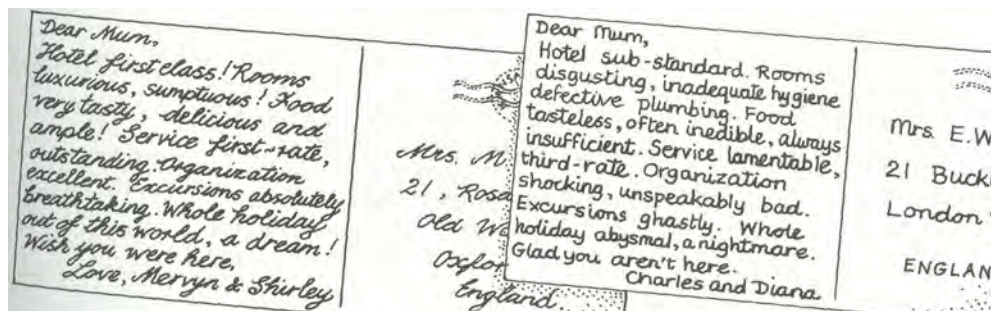 Dear Mum,
Hotel first class! Rooms
luxurious, sumptuous! Food
very tasty, delicious and
ample! Service first-rate,
outstanding. Organization
excellent. Excursions absolutely
breathtaking. Whole holiday
out of this world, a dream!
Wish you were here,
Love, Mervyn & Shirley
Mrs. M
21, Rosa
Old W
Oxfor
England.
Dear Mum,
Hotel sub-standard. Rooms
disgusting, inadequate hygiene
defective plumbing. Food
tasteless, often inedible, always
insufficient. Service lamentable,
third-rate. Organization
shocking, unspeakably bad.
Excursions ghastly. Whole
holiday abysmal, a nightmare.
Glad you aren't here.
Charles and Diana
Mrs. E.W
21 Buck
London
ENGLAN